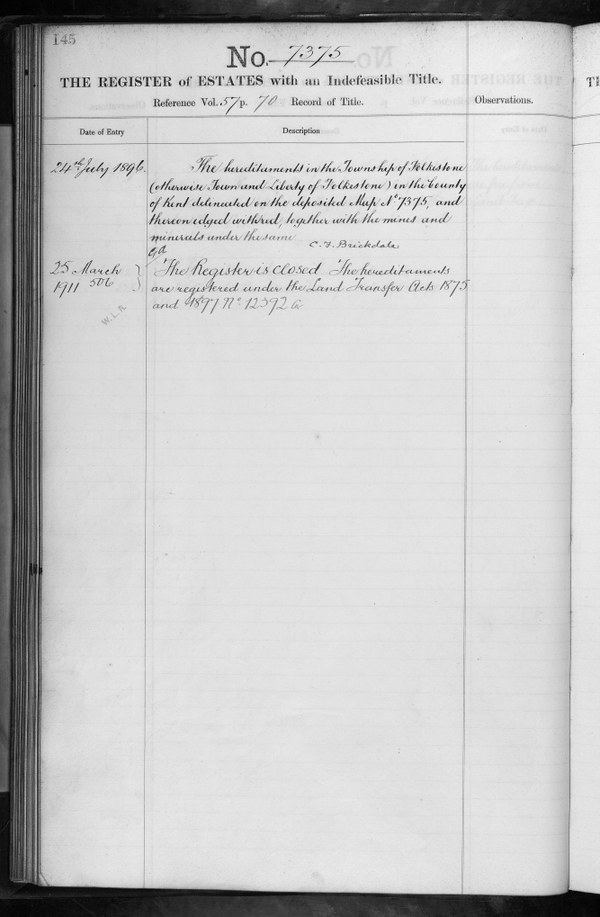 145
No. 7375
THE REGISTER of ESTATES with an Indefeasible Title.
Reference Vol. 57 p. 70 Record of Title.
Observations.
Date of Entry
Description
24th July 1896.
The hereditaments in the Township of Folkestone
(otherwise Town and Liberty of Folkestone) in the County
of Kent delineated on the deposited Map No 7375, and
thereon edged with red, together with the mines and
minerals under the same
C. F. Brickdale
25 March
1911 506
The Register is closed The hereditaments
are registered under the Land Transfer Acts 1875
and 1897 No. 12392
W.L.R.